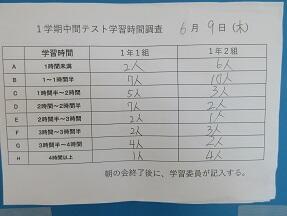 1学期中間テスト学習時間調査 6月9日(木)
学習時間 1年1組 1年2組
A 1時間未満 2人 6人
B 1〜1時間半 7人 10人
C 1時間半〜2時間 5人 3人
D 2時間〜2時間半 7人 2人
E 2時間半〜3時間 2人 1人
F 3時間〜3時間半 2人 3人
G 3時間半〜4時間 4人 2人
H 4時間以上 1人 4人
朝の会終了後に、学習委員が記入する。